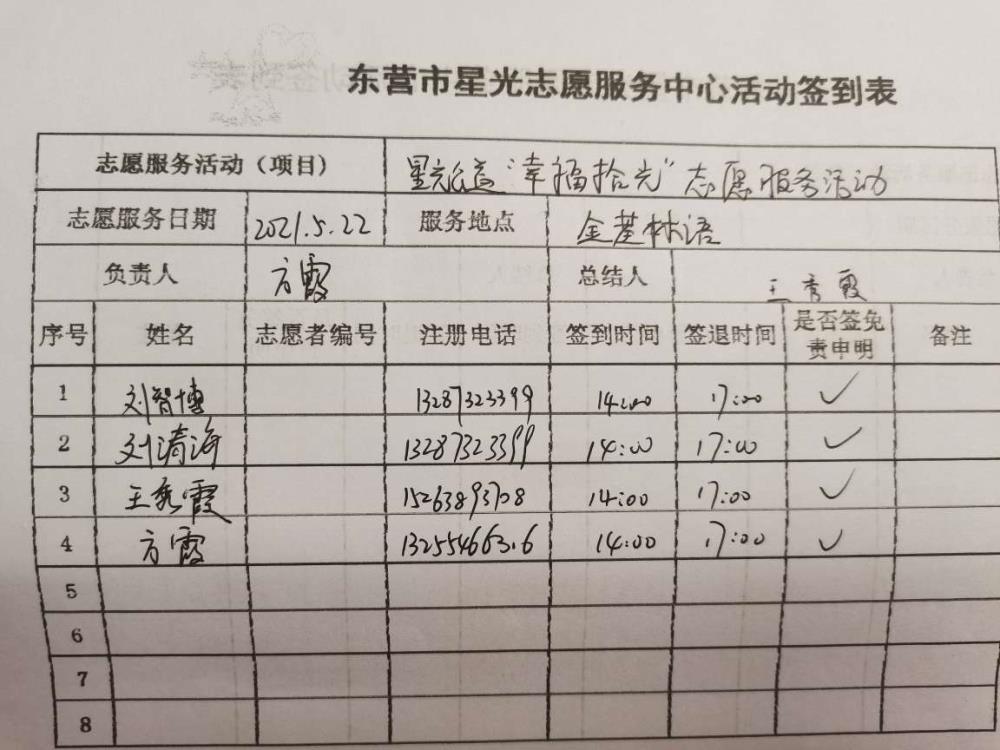 东营市星光志愿服务中心活动签到表
志愿服务活动（项目） 星光公益“幸福拾光”志愿服务活动
志愿服务日期 2021.5.22 服务地点 金基林语
负责人 方霞 总结人 王秀霞
序号 姓名 志愿者编号 注册电话 签到时间 签退时间 是否签免责申明 备注
1 刘智博 13287323399 14:00 17:00 ✓
2 刘清海 13287323399 14:00 17:00 ✓
3 王秀霞 15263893708 14:00 17:00 ✓
4 方霞 14:00 17:00 ✓
5
6
7
8